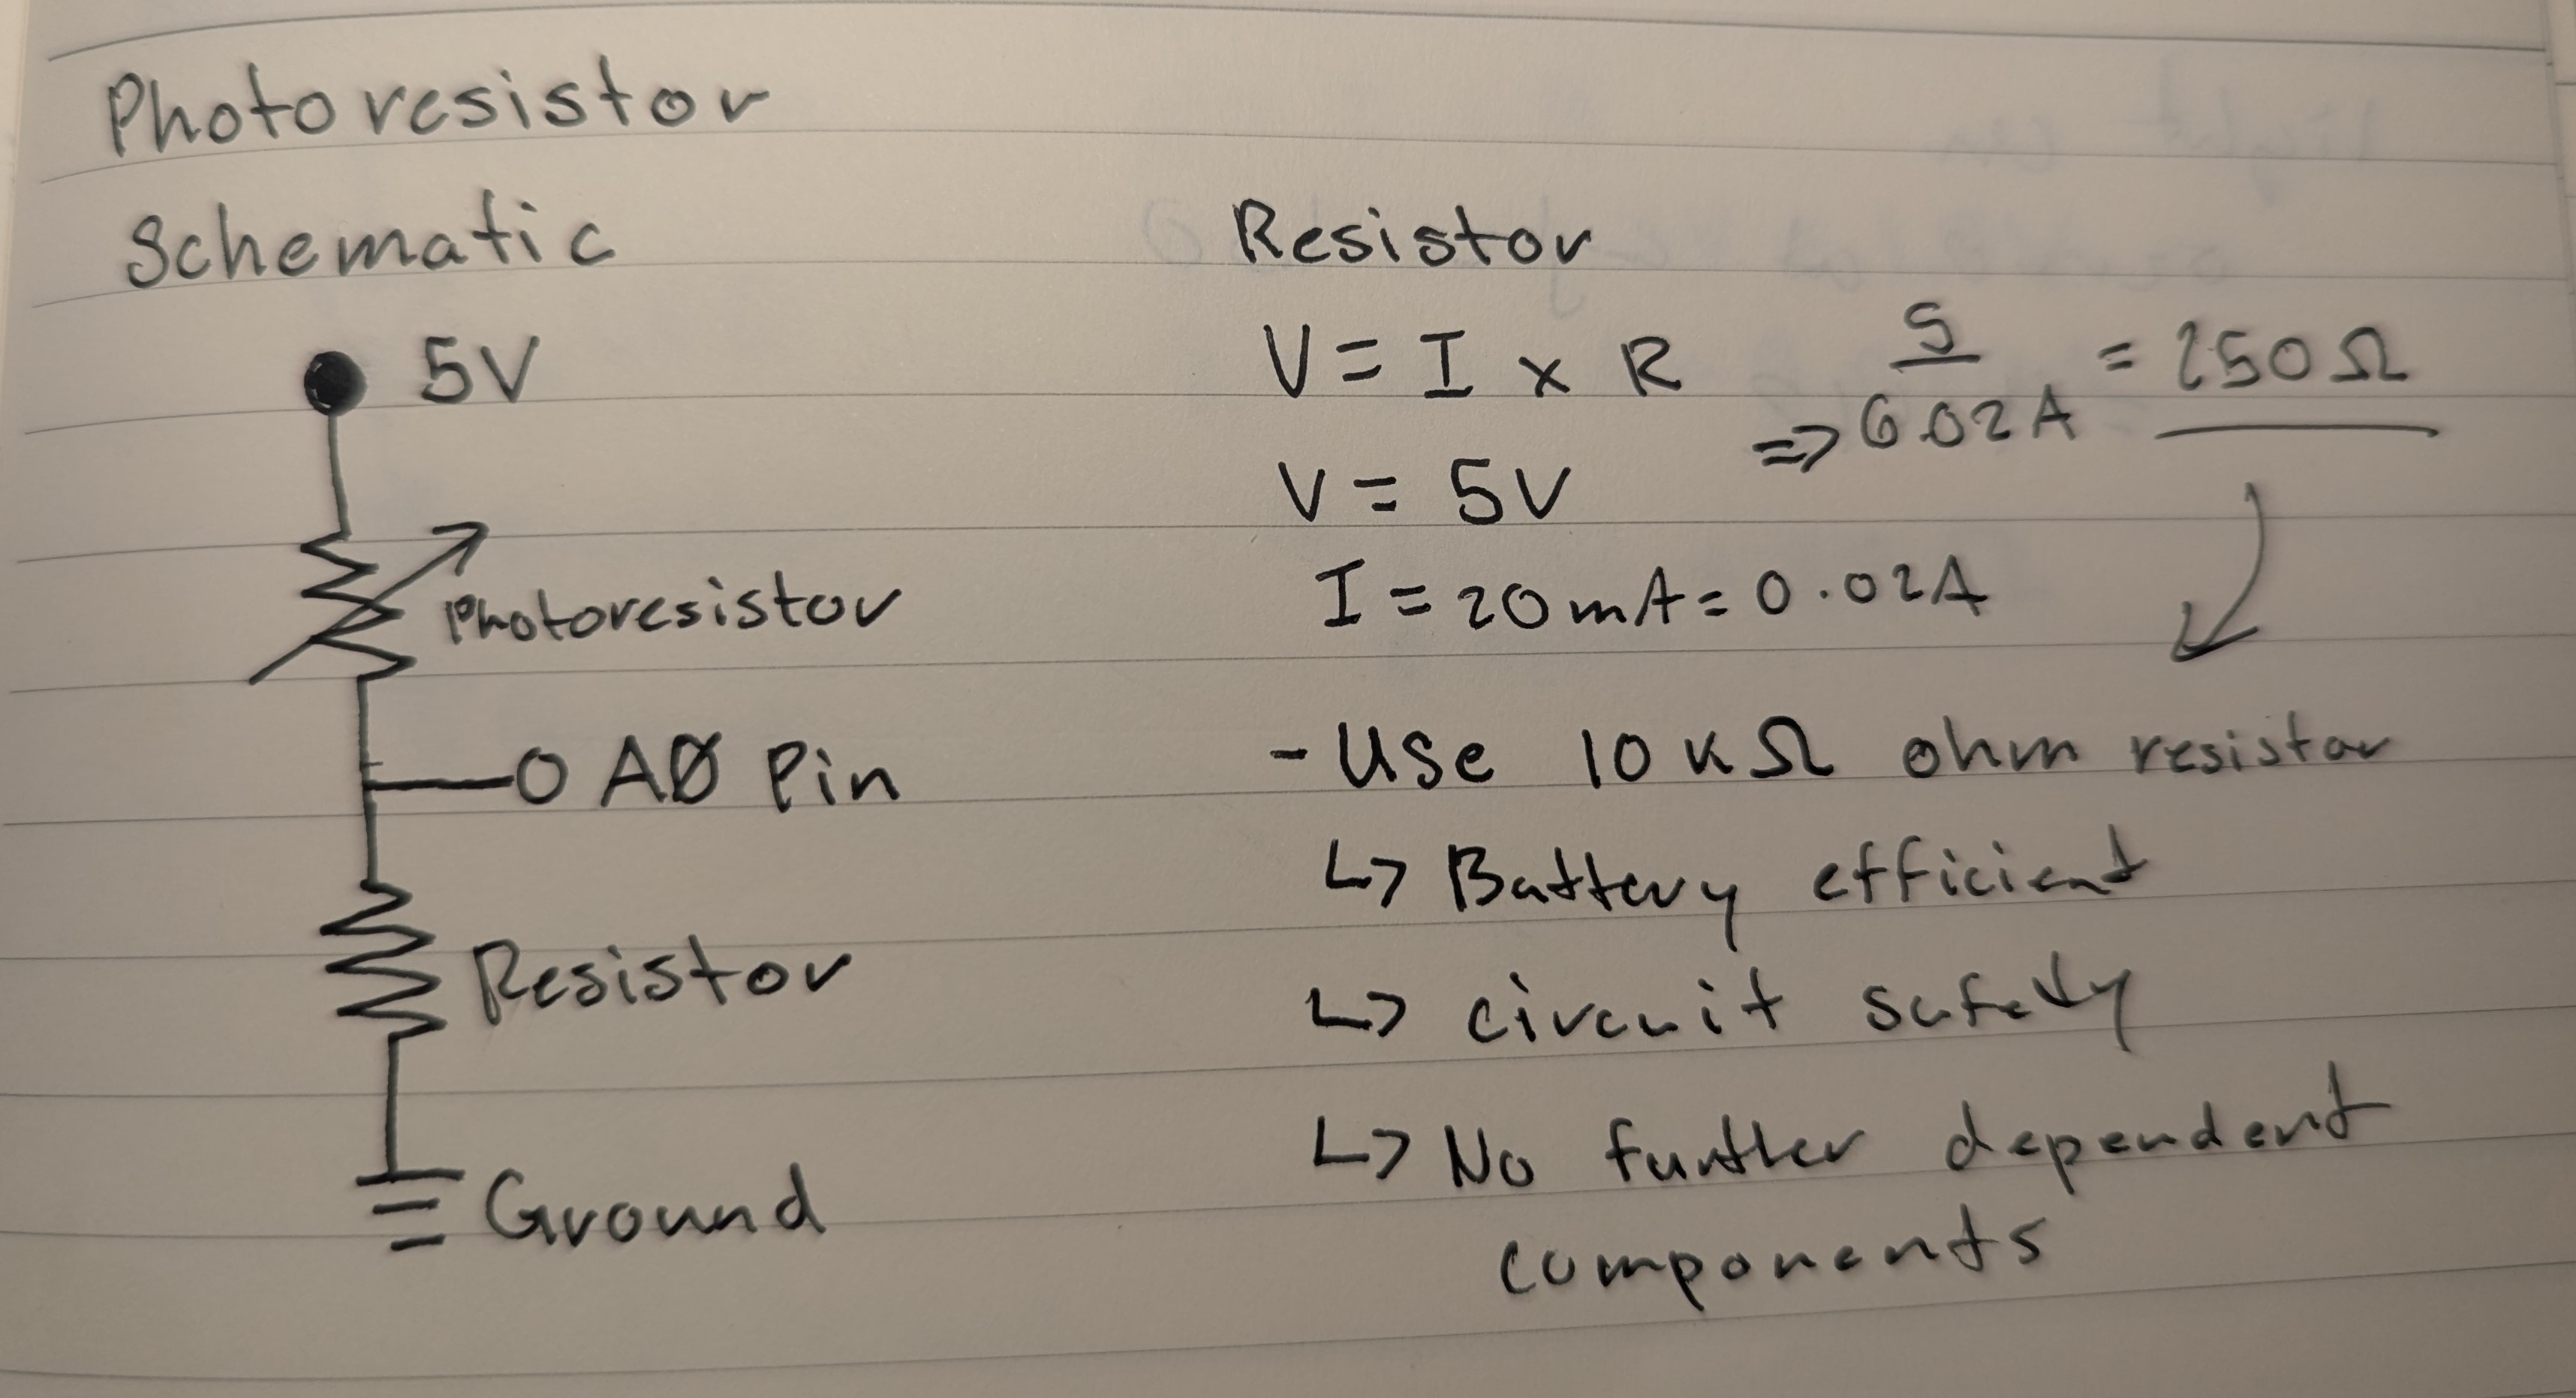 Photoresistor
Schematic
5V
Photoresistor
AØ Pin
Resistor
Ground
Resistor
V = I x R
=> 5/0.02A = 250Ω
V = 5V
I = 20mA = 0.02A
- Use 10 kΩ ohm resistor
↳ Battery efficient
↳ circuit safety
↳ No further dependent
components